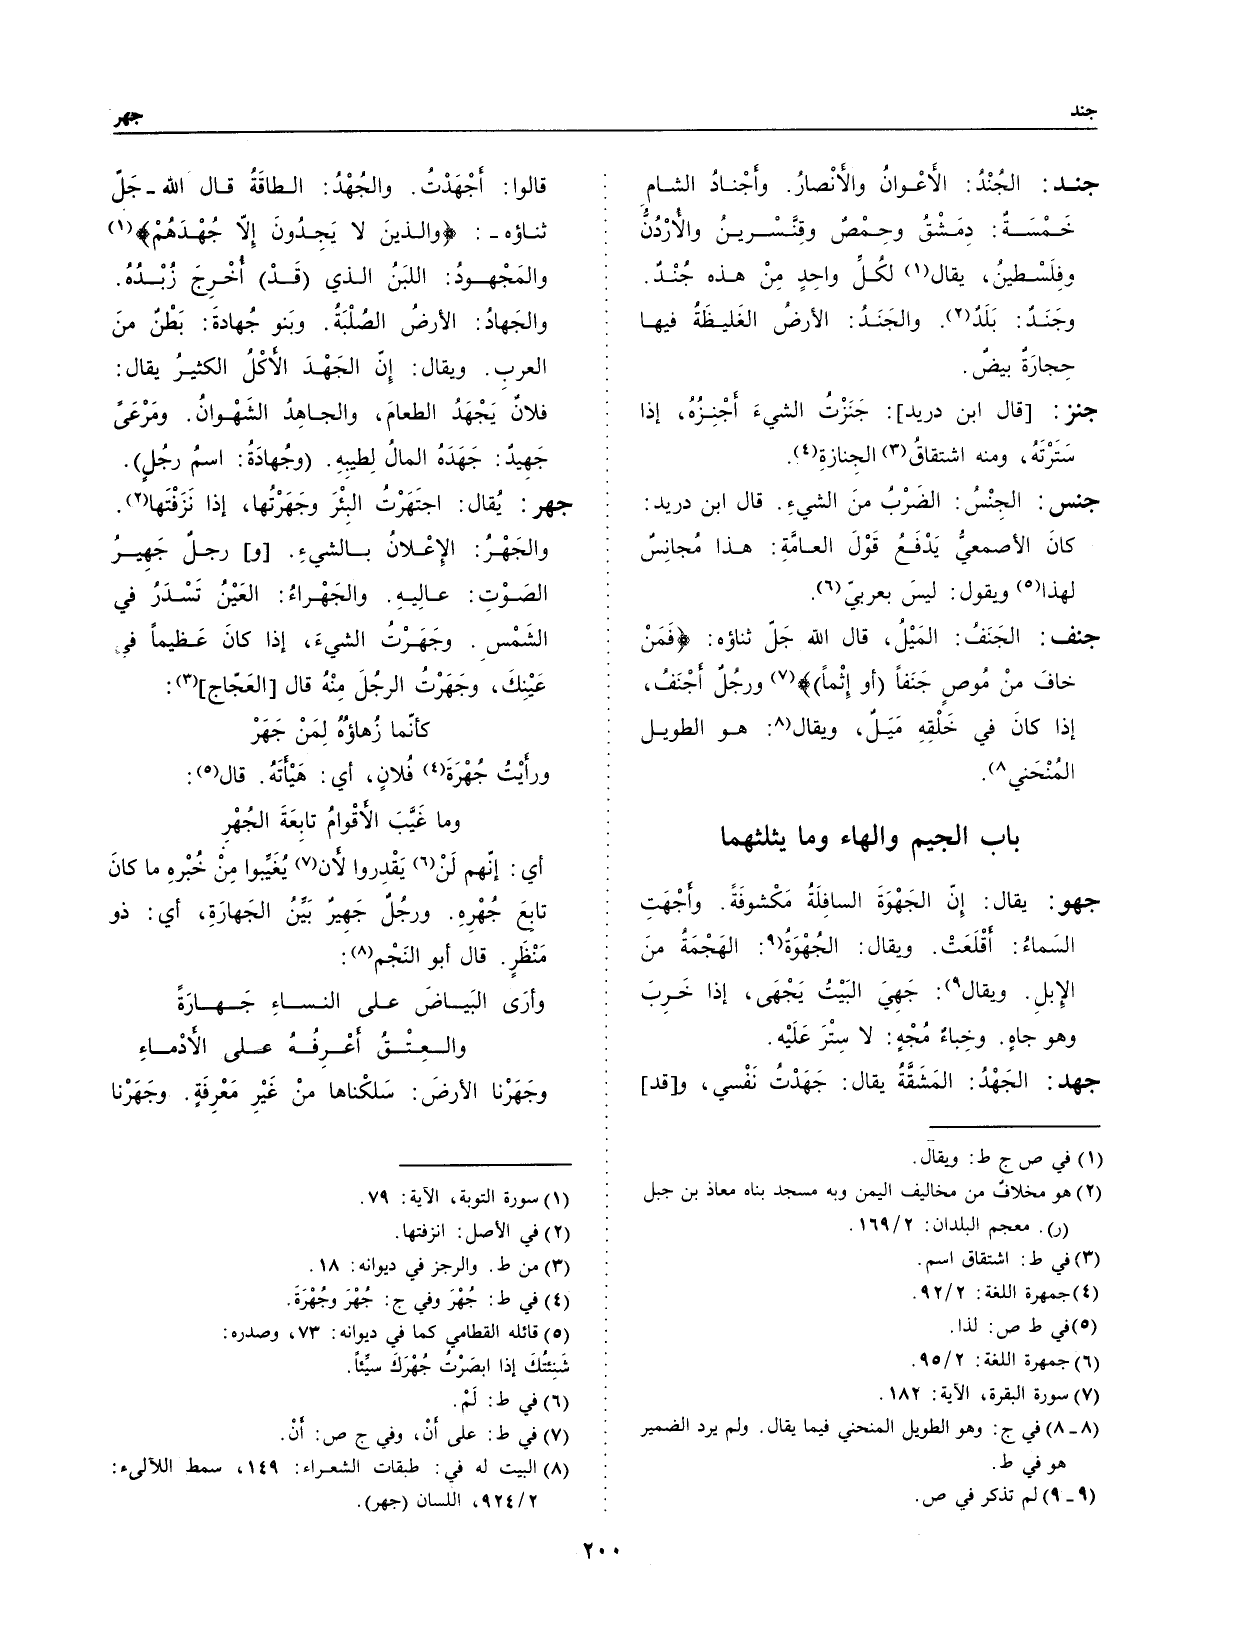 جند
جهر
جنـد: الجُنْدُ: الأَعْوانُ والأَنْصارُ. وأَجْنادُ الشام
خَمْسَـةٌ: دِمَشْقُ وحِمْصٌ وقِنَّسْـرينُ والأُرْدُنُّ
وفِلَسْطينُ، يقال(١) لكُلِّ واحِدٍ مِنْ هذه جُنْدٌ.
وجَنَدٌ: بَلَدٌ(٢). والجَنَدُ: الأرضُ الغَليظَةُ فيها
حِجارَةٌ بيضٌ.
جنز: [قال ابن دريد]: جَنَزْتُ الشيءَ أَجْنِزُهُ، إذا
سَتَرْتَهُ، ومنه اشتقاقُ(٣) الجنازة(٤).
جنس: الجِنْسُ: الضَرْبُ منَ الشيءِ. قال ابن دريد:
كانَ الأصمعيُّ يَدْفَعُ قَوْلَ العامَّةِ: هذا مُجانِسٌ
لهذا(٥) ويقول: ليسَ بعربيّ(٦).
جنف: الجَنَفُ: المَيْلُ، قال الله جَلّ ثناؤه: ﴿فَمَنْ
خافَ منْ مُوصٍ جَنَفاً (أو إثْماً)﴾(٧) ورجُلٌ أَجْنَفُ،
إذا كانَ في خَلْقِهِ مَيَلٌ، ويقال(٨: هـو الطويل
المُنْحَني ٨).
باب الجيم والهاء وما يثلثهما
جهو: يقال: إنّ الجَهْوَةَ السافِلَةُ مَكْشوفَةً. وأَجْهَتِ
السَماءُ: أَقْلَعَتْ. ويقال: الجُهْوَةُ(٩: الهَجْمَةُ منَ
الإبلِ. ويقال٩): جَهِيَ البَيْتُ يَجْهَى، إذا خَرِبَ
وهو جاهٍ. وخِباءٌ مُجْهٍ: لا سِتْرَ عَلَيْه.
جهد: الجَهْدُ: المَشَقَّةُ يقال: جَهَدْتُ نَفْسي، و[قد]
(١) في ص ج ط: ويقال.
(٢) هو مخلافٌ من مخاليف اليمن وبه مسجد بناه معاذ بن جبل
(ر). معجم البلدان: ١٦٩/٢.
(٣) في ط: اشتقاق اسم.
(٤) جمهرة اللغة: ٩٢/٢.
(٥) في ط ص: لذا.
(٦) جمهرة اللغة: ٩٥/٢.
(٧) سورة البقرة، الآية: ١٨٢.
(٨ ـ ٨) في ج: وهو الطويل المنحني فيما يقال. ولم يرد الضمير
هو في ط.
(٩ ـ ٩) لم تذكر في ص.
قالوا: أَجْهَدْتُ. والجُهْدُ: الطاقَةُ قال الله ـ جَلّ
ثناؤه ـ: ﴿والذينَ لا يَجِدُونَ إلّا جُهْدَهُمْ﴾(١)
والمَجْهودُ: اللبَنُ الذي (قَـدْ) أُخْرِجَ زُبْدُهُ.
والجَهادُ: الأرضُ الصُلْبَةُ. وبَنو جُهادةَ: بَطْنٌ منَ
العرب. ويقال: إنّ الجَهْدَ الأَكْلُ الكثيرُ يقال:
فلانٌ يَجْهَدُ الطعامَ، والجاهِدُ الشَهْوانُ. ومَرْعَىً
جَهيدٌ: جَهَدَهُ المالُ لِطيبِهِ. (وجُهادَةُ: اسمُ رجُلٍ).
جهر: يُقال: اجتَهَرْتُ البِئْرَ وجَهَرْتُها، إذا نَزَفْتَها(٢).
والجَهْرُ: الإعْلانُ بـالشيءِ. [و] رجـلٌ جَهيـرُ
الصَوْتِ: عاليهِ. والجَهْراءُ: العَيْنُ تَسْدَرُ في
الشَمْسِ. وجَهَرْتُ الشيءَ، إذا كانَ عَظيماً في
عَيْنِكَ، وجَهَرْتُ الرجُلَ مِنْهُ قال [العَجّاج](٣):
كأنّما زُهاؤُهُ لِمَنْ جَهَرْ
ورأَيْتُ جُهْرَةَ(٤) فُلانٍ، أي: هَيْأَتَهُ. قال(٥):
وما غَيَّبَ الأقْوامُ تابِعَةَ الجُهْرِ
أي: إنّهم لَنْ(٦) يَقْدِروا لأن(٧) يُغَيِّبوا مِنْ خُبْرِهِ ما كانَ
تابِعَ جُهْرِهِ. ورجُلٌ جَهيرٌ بَيِّنُ الجَهارَةِ، أي: ذو
مَنْظَرٍ. قال أبو النَجْم(٨):
وأَرَى البَيـاضَ على النسـاءِ جَهـارَةً
والـعِتْـقُ أَعْـرِفُـهُ عـلى الأَدْمـاءِ
وجَهَرْنا الأرضَ: سَلكْناها منْ غَيْرِ مَعْرِفَةٍ. وجَهَرْنا
(١) سورة التوبة، الآية: ٧٩.
(٢) في الأصل: انزفتها.
(٣) من ط. والرجز في ديوانه: ١٨.
(٤) في ط: جُهْرَ وفي ج: جُهْرَ وجُهْرَةَ.
(٥) قائله القطامي كما في ديوانه: ٧٣، وصدره:
شَنِئتُكَ إذا ابصَرْتُ جُهْرَكَ سيِّئاً.
(٦) في ط: لَمْ.
(٧) في ط: على أنْ، وفي ج ص: أنْ.
(٨) البيت له في: طبقات الشعراء: ١٤٩، سمط اللآلىء:
٩٢٤/٢، اللسان (جهر).
٢٠٠